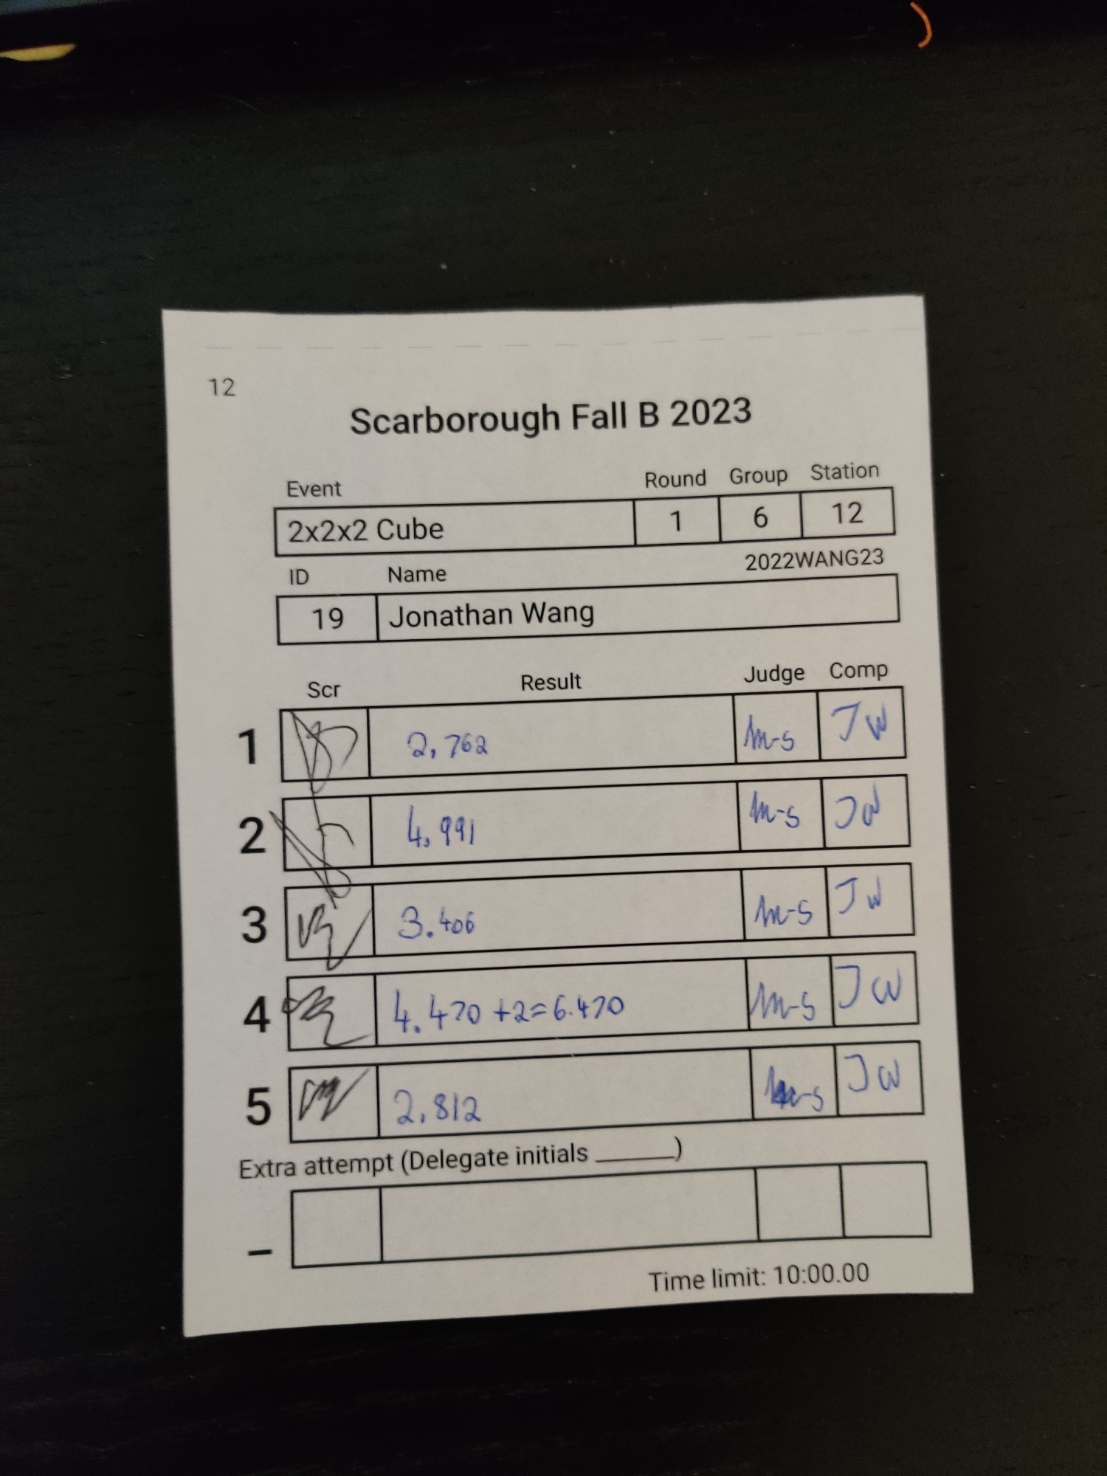 12
Scarborough Fall B 2023
Event Round Group Station
2x2x2 Cube 1 6 12
ID Name 2022WANG23
19 Jonathan Wang
Scr Result Judge Comp
1 2,762 m-s JW
2 4,991 m-s JW
3 3.406 m-s JW
4 4.470 +2=6.470 m-s JW
5 2.812 m-s JW
Extra attempt (Delegate initials ______)
–
Time limit: 10:00.00